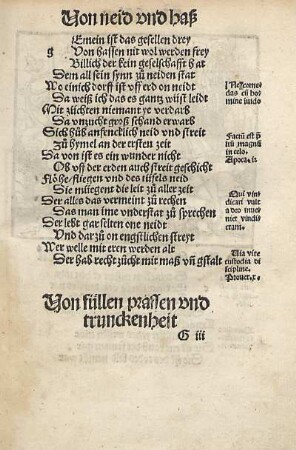 Von neid vnd haß
g Emein ist das gesellen drey
Von hassen nit wol werden frey
Billich der kein geselschafft hat
Dem all sein synn zu neiden stat
Wo einich dorff ist vff erd on neidt
Da weiß ich das es gantz wüst leidt
Mit züchten niemant ye verdarb
Da vnzucht groß schand erwarb
Sich hůb anfencklich neid vnd streit
Zu hymel an der ersten zeit
Da von ist es ein wunder nicht
Ob vff der erden auch streit geschicht
Flöhe fliegen vnd des tüfels neid
Die müegent die leit zu aller zeit
Der alles das vermeint zu rechen
Das man ime vnderstat zu sprechen
Der lebt gar selten one neidt
Vnd dar zu on engstlichen streyt
Wer welle mit eren werden alt
Der hab recht zücht mit maß vñ gstalt
Factũ est p̃
liũ magnũ
in celo.
Apoca.
Qui vin
dicari vult
a deo inue
niet vindic
tam.
Via vite
custodia di
scipline.
Prouer.x.
Von füllen prassen vnd
trunckenheit
G iii